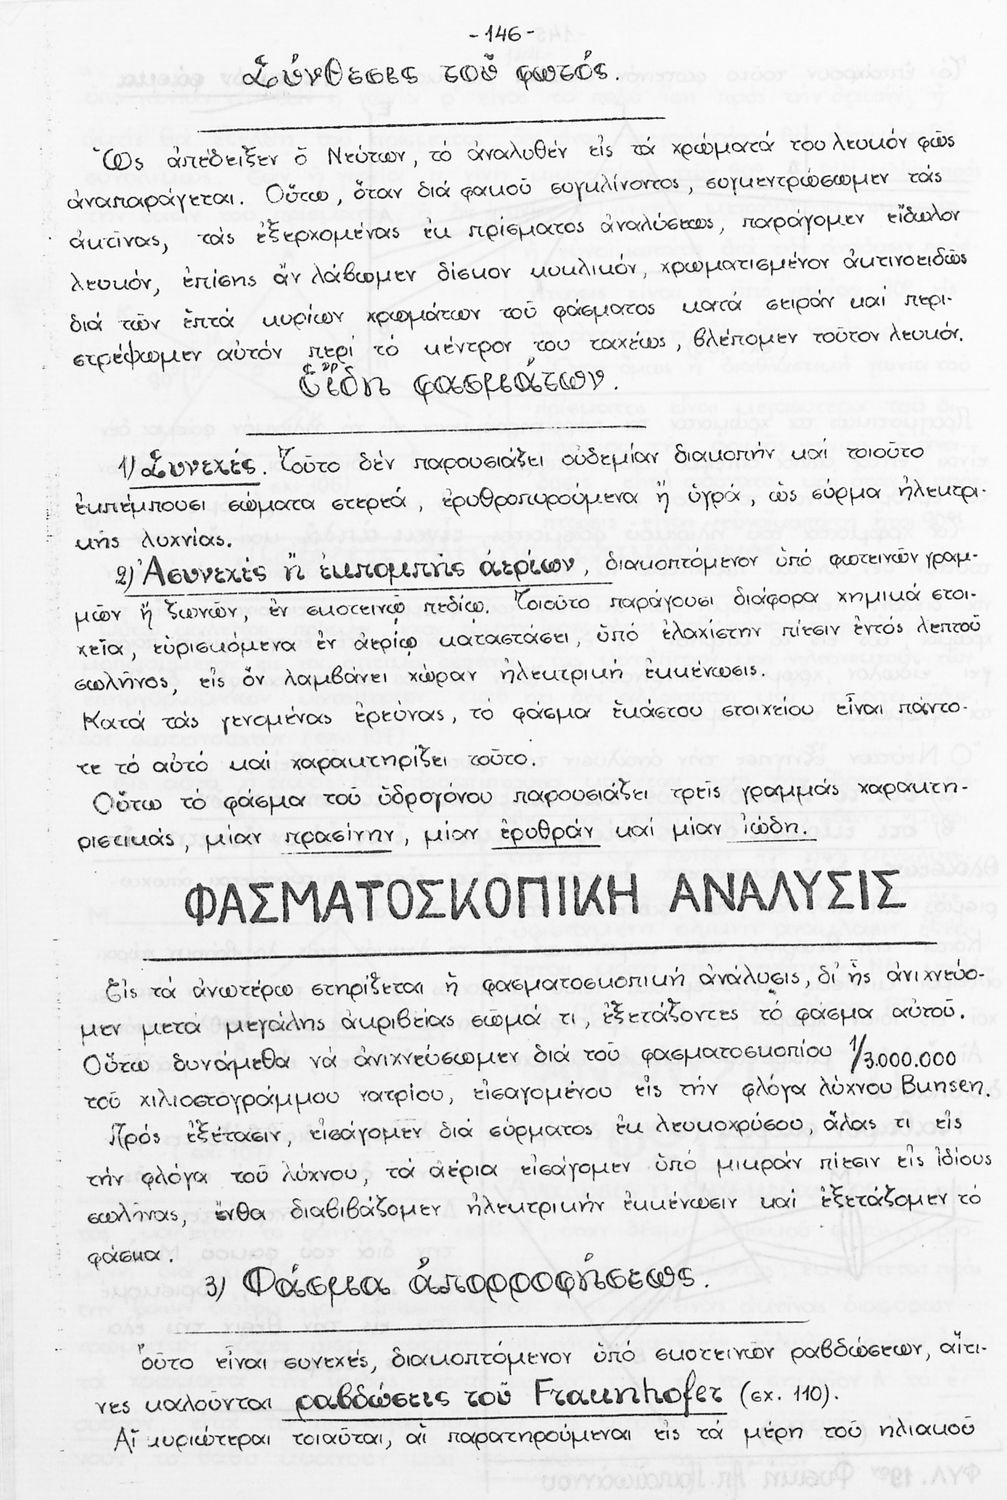 -146-
Σύνθεσις τοῦ φωτός.
Ὡς ἀπέδειξεν ὁ Νεύτων, τό ἀναλυθέν εἰς τά χρώματά του λευκόν φῶς
ἀναπαράγεται. Οὕτω, ὅταν διά φακοῦ συγκλίνοντος, συγκεντρώσωμεν τάς
ἀκτῖνας, τάς ἐξερχομένας ἐκ πρίσματος ἀναλύσεως, παράγομεν εἴδωλον
λευκόν, ἐπίσης ἄν λάβωμεν δίσκον κυκλικόν, χρωματισμένον ἀκτινοειδῶς
διά τῶν ἑπτά κυρίων χρωμάτων τοῦ φάσματος κατά σειράν καί περι-
στρέψωμεν αὐτόν περί τό κέντρον του ταχέως, βλέπομεν τοῦτον λευκόν.
Εἴδη φασμάτων.
1) Συνεχές. Τοῦτο δέν παρουσιάζει οὐδεμίαν διακοπήν καί τοιοῦτο
ἐκπέμπουσι σώματα στερεά, ἐρυθροπυρούμενα ἤ ὑγρά, ὡς σύρμα ἠλεκτρι-
κῆς λυχνίας.
2) Ἀσυνεχές ἤ ἐκπομπῆς ἀερίων, διακοπτόμενον ὑπό φωτεινῶν γραμ-
μῶν ἤ ζωνῶν, ἐν σκοτεινῷ πεδίῳ. Τοιοῦτο παράγουσι διάφορα χημικά στοι-
χεῖα, εὑρισκόμενα ἐν ἀερίῳ καταστάσει, ὑπό ἐλαχίστην πίεσιν ἐντός λεπτοῦ
σωλῆνος, εἰς ὅν λαμβάνει χώραν ἠλεκτρική ἐκκένωσις.
Κατά τάς γενομένας ἐρεύνας, τό φάσμα ἑκάστου στοιχείου εἶναι πάντο-
τε τό αὐτό καί χαρακτηρίζει τοῦτο.
Οὕτω τό φάσμα τοῦ ὑδρογόνου παρουσιάζει τρεῖς γραμμάς χαρακτη-
ριστικάς, μίαν πρασίνην, μίαν ἐρυθράν καί μίαν ἰώδη.
ΦΑΣΜΑΤΟΣΚΟΠΙΚΗ ΑΝΑΛΥΣΙΣ
Εἰς τά ἀνωτέρω στηρίζεται ἡ φασματοσκοπική ἀνάλυσις, δι' ἧς ἀνιχνεύο-
μεν μετά μεγάλης ἀκριβείας σῶμά τι, ἐξετάζοντες τό φάσμα αὐτοῦ.
Οὕτω δυνάμεθα νά ἀνιχνεύσωμεν διά τοῦ φασματοσκοπίου 1/3.000.000
τοῦ χιλιοστογράμμου νατρίου, εἰσαγομένου εἰς τήν φλόγα λύχνου Bunsen.
Πρός ἐξέτασιν, εἰσάγομεν διά σύρματος ἐκ λευκοχρύσου, ἅλας τι εἰς
τήν φλόγα τοῦ λύχνου, τά ἀέρια εἰσάγομεν ὑπό μικράν πίεσιν εἰς ἰδίους
σωλῆνας, ἔνθα διαβιβάζομεν ἠλεκτρικήν ἐκκένωσιν καί ἐξετάζομεν τό
φάσμα.
3) Φάσμα ἀπορροφήσεως.
οὗτο εἶναι συνεχές, διακοπτόμενον ὑπό σκοτεινῶν ραβδώσεων, αἵτι-
νες καλοῦνται ραβδώσεις τοῦ Fraunhofer (σχ. 110).
Αἱ κυριώτεραι τοιαῦται, αἱ παρατηρούμεναι εἰς τά μέρη τοῦ ἡλιακοῦ